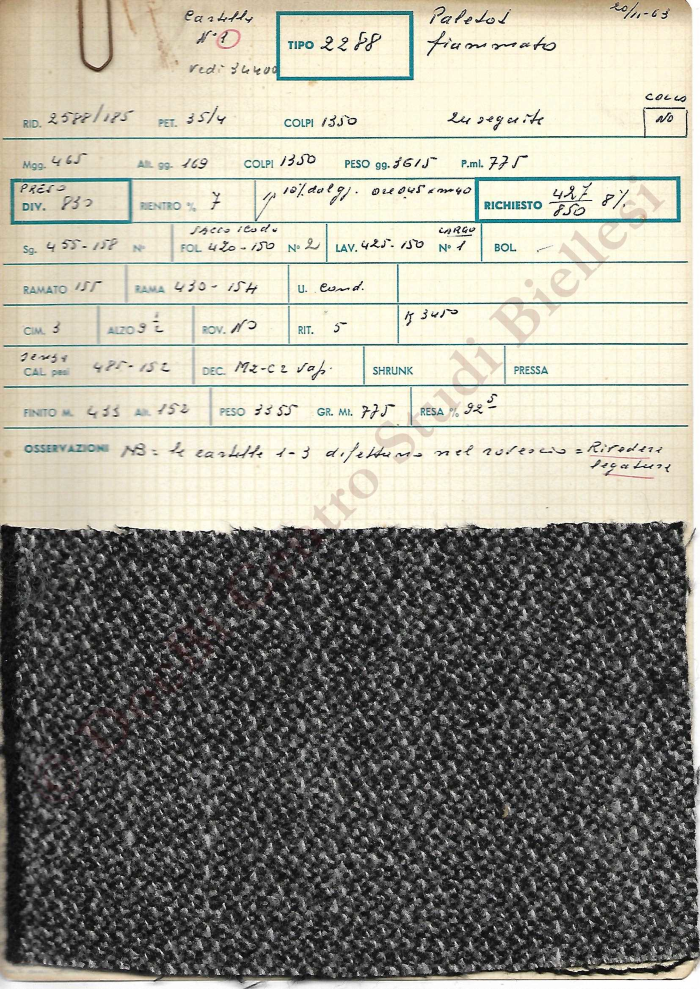 Cartella Paletot 20/11-63
N° 1 TIPO 2288 fiammato
Vedi 34400
COLLO
RID. 2588/185 PET. 35/4 COLPI 1350 In seguito NO
Mgg. 465 Alt. gg. 169 COLPI 1350 PESO gg. 3615 P.ml. 775
PRESO
DIV. 830 RIENTRO % 7 10% dal gg. ore 045 x m 40 RICHIESTO 427/850 8%
SACCO LARGO
Sg. 455-158 N° FOL. 420-150 N° 2 LAV. 425-150 N° 1 BOL. -
RAMATO 155 RAMA 430-154 U. cond.
CIM. 3 ALZO 9 1/2 ROV. NO RIT. 5 Kg 3450
senza
CAL. pesi 485-152 DEC. M2-C2 Vap. SHRUNK PRESSA
FINITO M. 433 Alt. 152 PESO 3355 GR. Mt. 775 RESA % 92 5
OSSERVAZIONI NB = le cartelle 1-3 difettano nel rovescio = Rivedere
legature
Centro Studi Biellesi